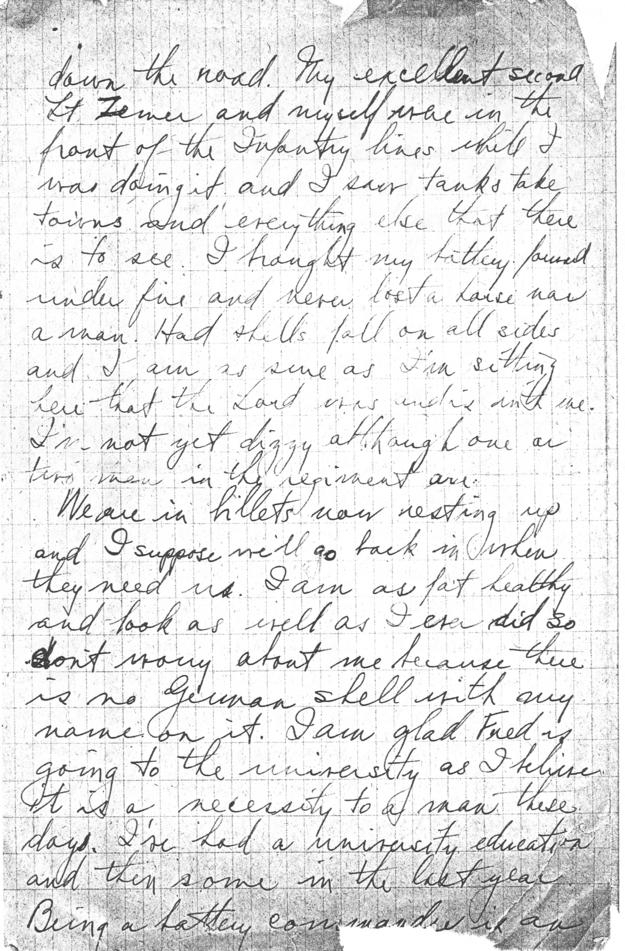 down the road. My excellent second
Lt Zemer and myself were in the
front of the Infantry lines while I
was doing it and I saw tanks take
towns and everything else that there
is to see. I brought my battery forward
under fire and never lost a horse nor
a man. Had shells fall on all sides
and I am as sure as I'm sitting
here that the Lord was and is with me.
I'm not yet dizzy although one or
two men in the regiment are.
We are in billets now resting up
and I suppose we'll go back in when
they need us. I am as fat healthy
and look as well as I ever did so
don't worry about me because there
is no German shell with my
name on it. I am glad Fred is
going to the university as I believe
it is a necessity to a man these
days. I've had a university education
and then some in the last year.
Being a battery commander is an